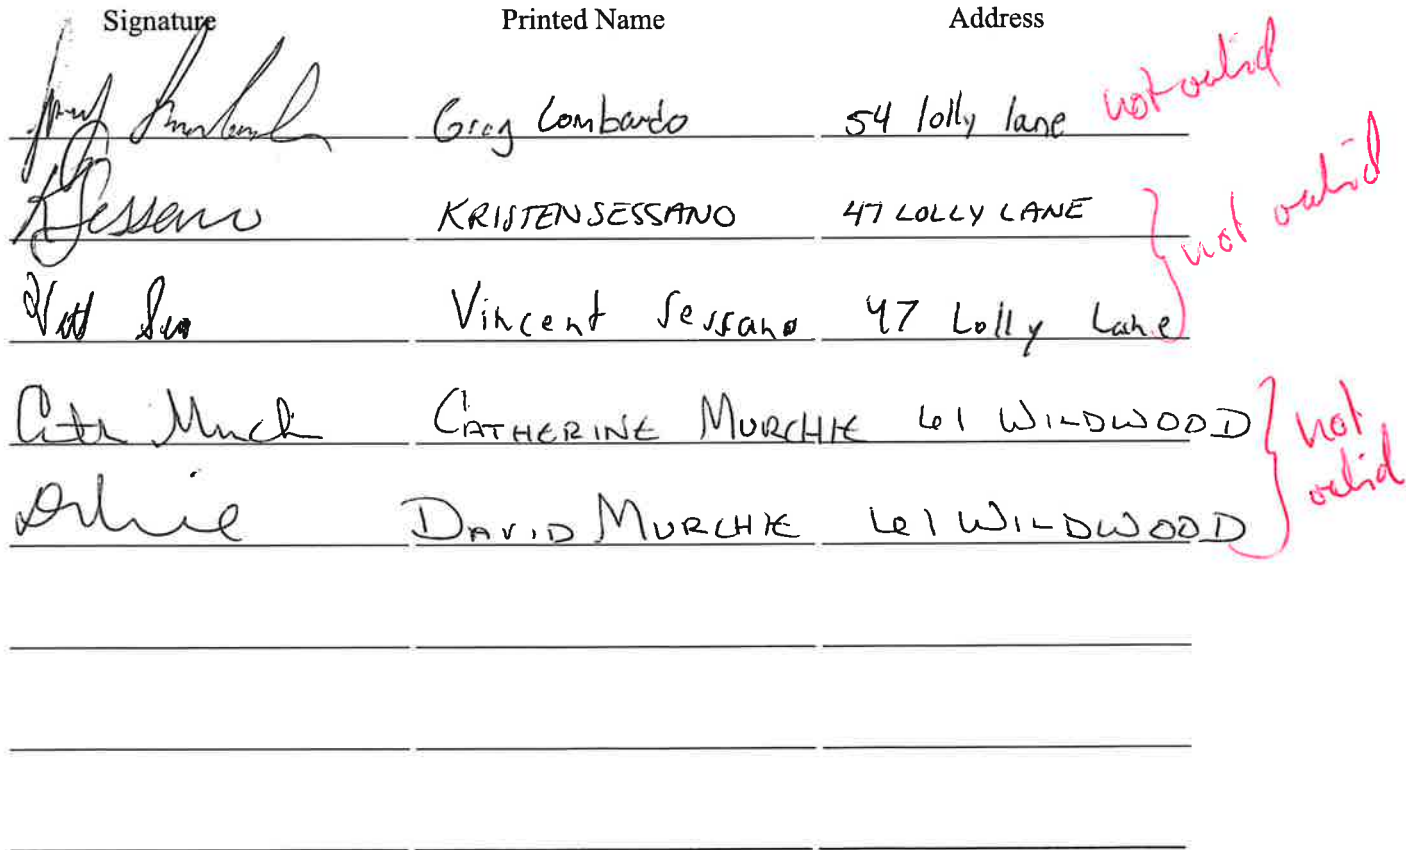 Signature Printed Name Address
Greg Lombardo 54 lolly lane not valid
KRISTEN SESSANO 47 LOLLY LANE not valid
Vincent Sessano 47 Lolly Lane
CATHERINE MURCHIE 61 WILDWOOD not valid
DAVID MURCHIE 61 WILDWOOD